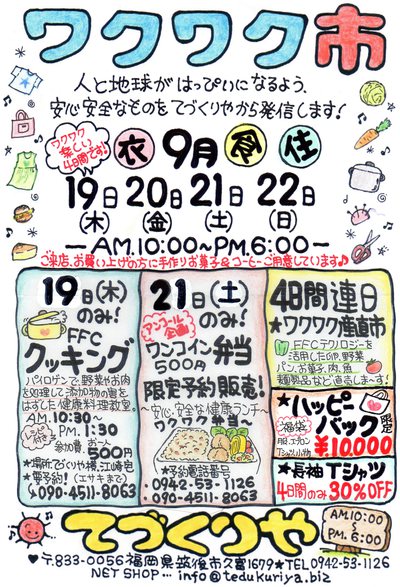 ワクワク市
人と地球が はっぴいになるよう、
安心安全なものを てづくりやから発信します!
ワクワク
楽しい
4日間です!
衣 9月 食 住
19日 20日 21日 22日
(木) (金) (土) (日)
ーAM.10:00~PM.6:00ー
ご来店、お買い上げの方に手作りお菓子&コーヒーご用意しています♪
19日(木)
のみ!
FFC
クッキング
パイロゲンで、野菜やお肉
を処理して添加物の害を
はずした健康料理教室。
AM.10:30
~PM.1:30
レシピ付
参加費 お一人
500円
★場所:てづくりや横、江崎宅
★要予約!(エサキまで)
090-4511-8063
21日(土)
のみ!
アンコール
企画
ワンコイン弁当
500円
限定予約販売!
~安心・安全な健康ランチ~
ワクワク弁当
★予約電話番号
0942-53-1126
090-4511-8063
4日間連日
★ワクワク産直市
FFCテクノロジーを
活用したGIP、野菜
パン、お菓子、肉、魚
麺製品など直売しまーす!
★ハッピー
バック
福袋
服、エプロン
Tシャツ、小物
限定
¥10,000
★長袖Tシャツ
4日間のみ 30%OFF
てづくりや
AM.10:00
~
PM.6:00
♥〒833-0056福岡県筑後市久富1679★TEL0942-53-1126
NET SHOP… info@tedukuriya.biz